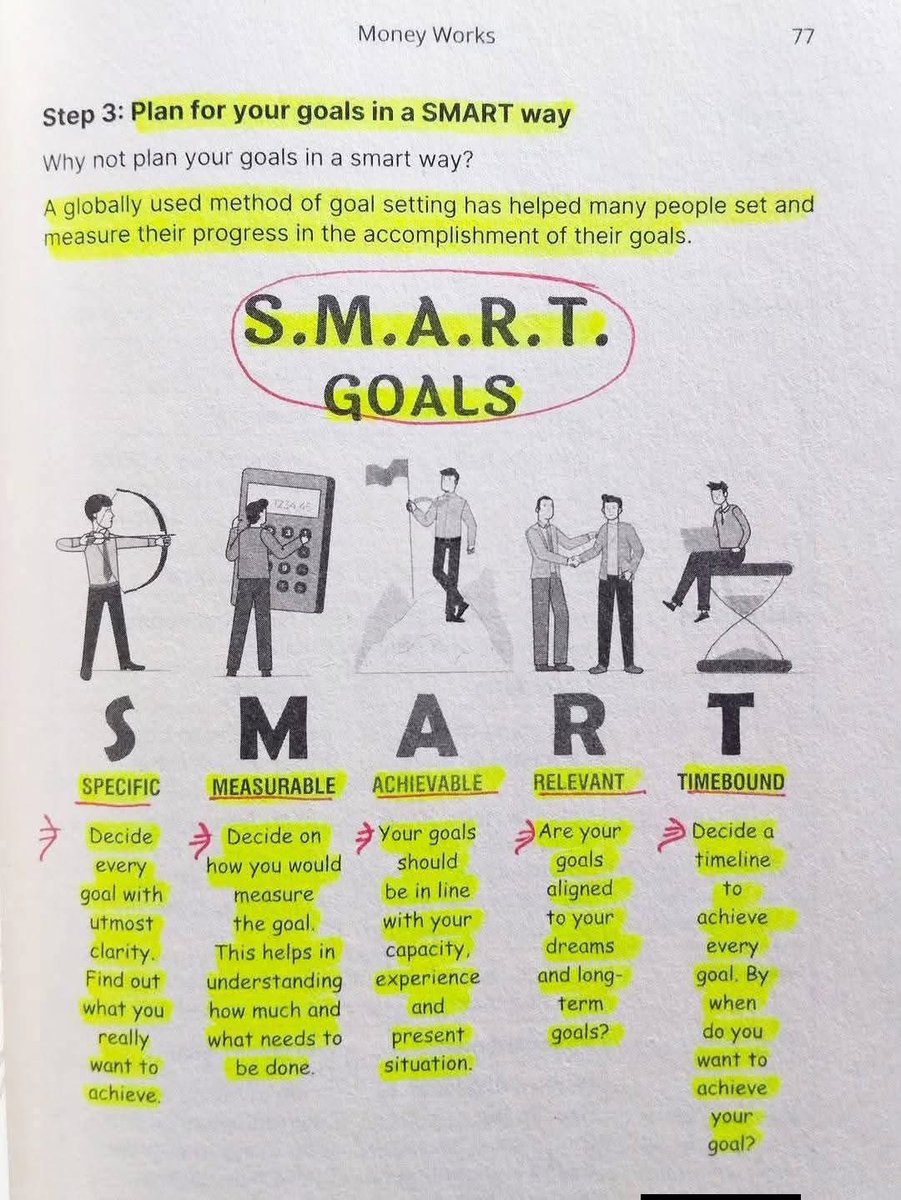 Money Works
77
Step 3: Plan for your goals in a SMART way
Why not plan your goals in a smart way?
A globally used method of goal setting has helped many people set and
measure their progress in the accomplishment of their goals.
S.M.A.R.T.
GOALS
S
SPECIFIC
Decide
every
goal with
utmost
clarity.
Find out
what you
really
want to
achieve.
M
MEASURABLE
Decide on
how you would
measure
the goal.
This helps in
understanding
how much and
what needs to
be done.
A
ACHIEVABLE
Your goals
should
be in line
with your
capacity,
experience
and
present
situation.
R
RELEVANT
Are your
goals
aligned
to your
dreams
and long-
term
goals?
T
TIMEBOUND
Decide a
timeline
to
achieve
every
goal. By
when
do you
want to
achieve
your
goal?